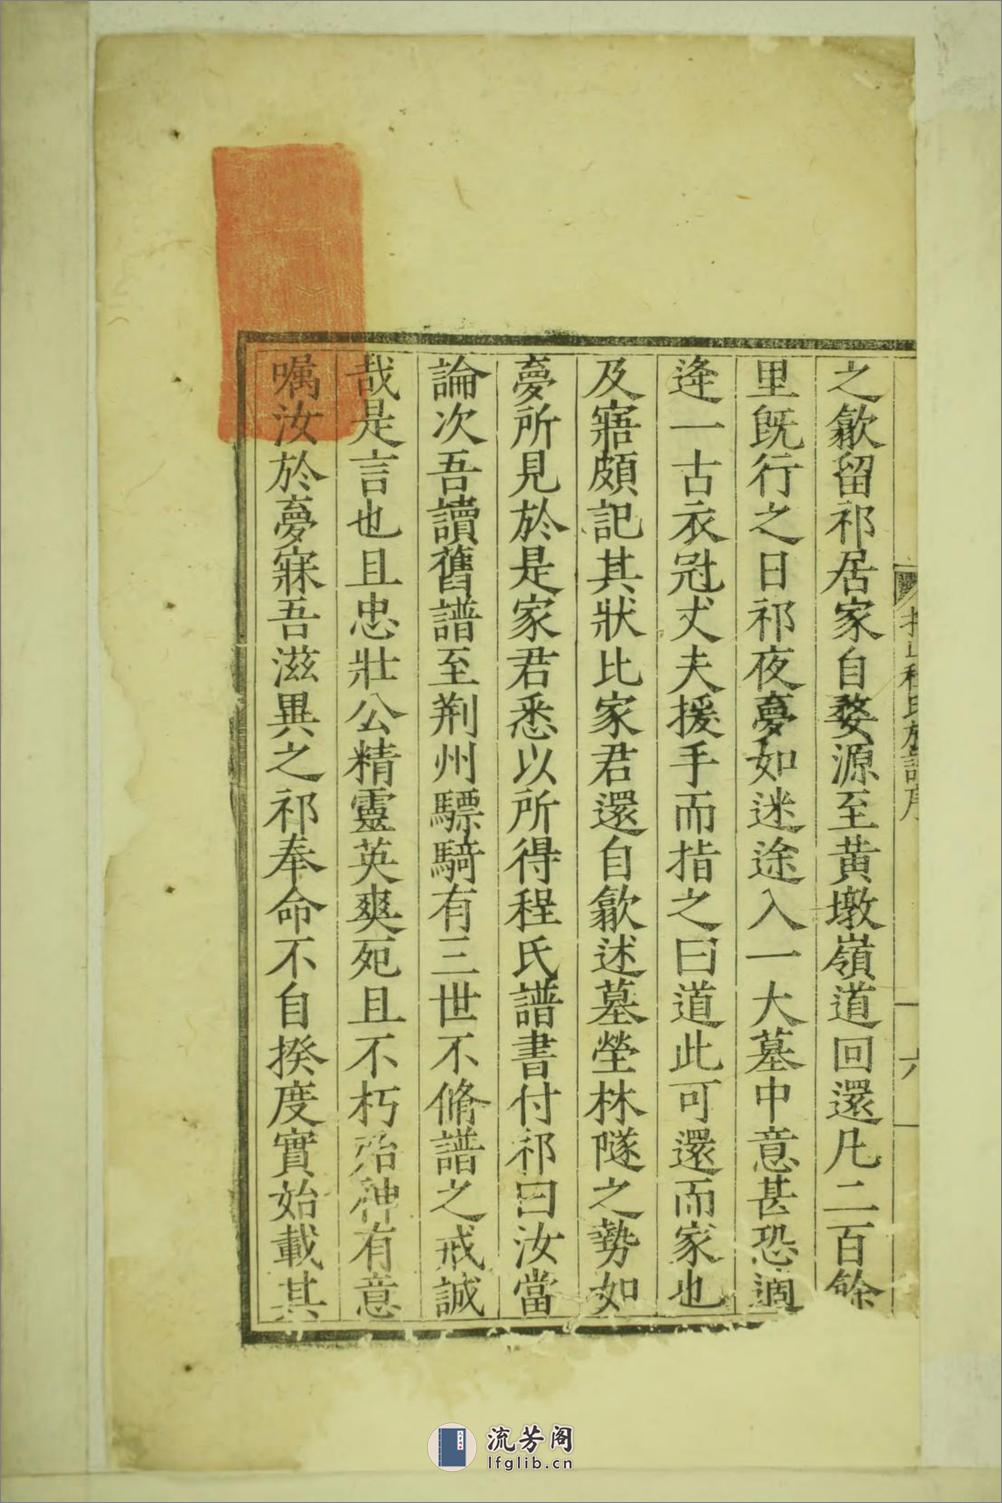 之歙留祁居家自婺源至黄墩嶺道回還凡二百餘
里既行之日祁夜夢如迷途入一大墓中意甚恐適
逄一古衣冠丈夫援手而指之曰道此可還而家也
及寤頗記其狀比家君還自歙述墓塋林隧之勢如
夢所見於是家君悉以所得程氏譜書付祁曰汝當
論次吾讀舊譜至荆州驃騎有三世不脩譜之戒誠
哉是言也且忠壯公精靈英爽死且不朽殆神有意
嘱汝於夢寐吾滋異之祁奉命不自揆度實始載其
程氏族譜序
六
流芳阁
lfglib.cn